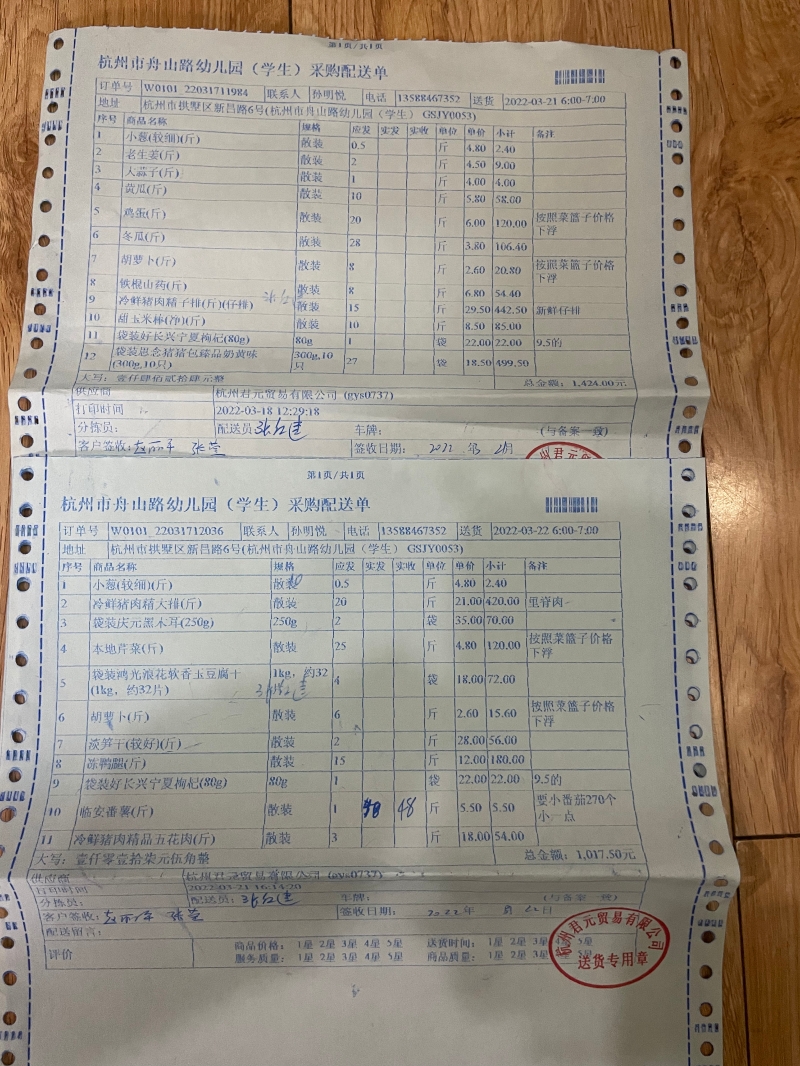 第1页/共1页
杭州市舟山路幼儿园（学生）采购配送单
订单号 W0101_22031711984 联系人 孙明悦 电话 13588467352 送货 2022-03-21 6:00-7:00
地址 杭州市拱墅区新昌路6号(杭州市舟山路幼儿园（学生） GSJY0053)
序号 商品名称 规格 应发 实发 实收 单位 单价 小计 备注
1 小葱(较细)(斤) 散装 0.5 斤 4.80 2.40
2 老生姜(斤) 散装 2 斤 4.50 9.00
3 大蒜子(斤) 散装 1 斤 4.00 4.00
4 黄瓜(斤) 散装 10 斤 5.80 58.00
5 鸡蛋(斤) 散装 20 斤 6.00 120.00 按照菜篮子价格下浮
6 冬瓜(斤) 散装 28 斤 3.80 106.40
7 胡萝卜(斤) 散装 8 斤 2.60 20.80 按照菜篮子价格下浮
8 铁棍山药(斤) 散装 8 斤 6.80 54.40
9 冷鲜猪肉精子排(斤)(仔排) 散装 15 斤 29.50 442.50 新鲜仔排
10 甜玉米棒(净)(斤) 散装 10 斤 8.50 85.00
11 袋装好长兴宁夏枸杞(80g) 80g 1 袋 22.00 22.00 9.5的
12 袋装思念猪猪包臻品奶黄味(300g,10只) 300g,10只 27 袋 18.50 499.50
大写：壹仟肆佰贰拾肆元整 总金额：1,424.00元
供应商 杭州君元贸易有限公司 (gys0737)
打印时间 2022-03-18 12:29:18
分拣员： 配送员 张红建 车牌： (与备案一致)
客户签收： 张莹 签收日期： 2022 年 3 21日
第1页/共1页
杭州市舟山路幼儿园（学生）采购配送单
订单号 W0101_22031712036 联系人 孙明悦 电话 13588467352 送货 2022-03-22 6:00-7:00
地址 杭州市拱墅区新昌路6号(杭州市舟山路幼儿园（学生） GSJY0053)
序号 商品名称 规格 应发 实发 实收 单位 单价 小计 备注
1 小葱(较细)(斤) 散装 0.5 斤 4.80 2.40
2 冷鲜猪肉精大排(斤) 散装 20 斤 21.00 420.00 里脊肉
3 袋装庆元黑木耳(250g) 250g 2 袋 35.00 70.00
4 本地芹菜(斤) 散装 25 斤 4.80 120.00 按照菜篮子价格下浮
5 袋装鸿光浪花软香玉豆腐干(1kg，约32片) 1kg，约32 4 袋 18.00 72.00
张红建
6 胡萝卜(斤) 散装 6 斤 2.60 15.60 按照菜篮子价格下浮
7 淡笋干(较好)(斤) 散装 2 斤 28.00 56.00
8 冻鸭腿(斤) 散装 15 斤 12.00 180.00
9 袋装好长兴宁夏枸杞(80g) 80g 1 袋 22.00 22.00 9.5的
10 临安番薯(斤) 散装 1 48 48 斤 5.50 5.50 要小番茄270个小一点
11 冷鲜猪肉精品五花肉(斤) 散装 3 斤 18.00 54.00
大写：壹仟零壹拾柒元伍角整 总金额：1,017.50元
供应商 杭州君元贸易有限公司 (gys0737)
打印时间 2022-03-21 16:34:20
分拣员： 配送员： 张红建 车牌： (与备案一致)
客户签收： 张莹 签收日期： 2022年 月 22日
配送留言：
评价 商品价格： 1星 2星 3星 4星 5星 送货时间： 1星 2星 3星 5星
服务质量： 1星 2星 3星 4星 5星 商品质量： 1星 2星 3星 5星
杭州君元贸易有限公司
送货专用章